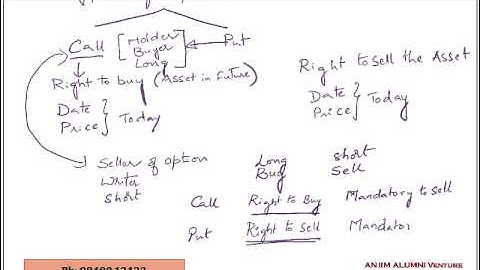 Call [ Holder Buyer Long ] Put
Right to buy (Asset in future)
Date
Price } Today
Right to sell the Asset
Date
Price } Today
Seller of option
writer
short
Long short
Buy Sell
Call Right to Buy Mandatory to sell
Put Right to Sell Mandator
AN IIM ALUMNI VENTURE